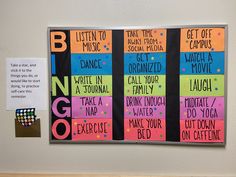 Take a star, and
stick it to the
things you do, or
would like to start
doing, to practice
self-care this
semester
B
I
N
G
O
LISTEN TO
MUSIC
TAKE TIME
AWAY FROM
SOCIAL MEDIA
GET OFF
"CAMPUS"
DANCE
GET
ORGANIZED
WATCH A
MOVIE
WRITE IN
A JOURNAL
CALL YOUR
FAMILY
LAUGH
TAKE A
NAP
DRINK ENOUGH
WATER
MEDITATE/
DO YOGA
EXERCISE
MAKE YOUR
BED
CUT DOWN
ON CAFFEINE